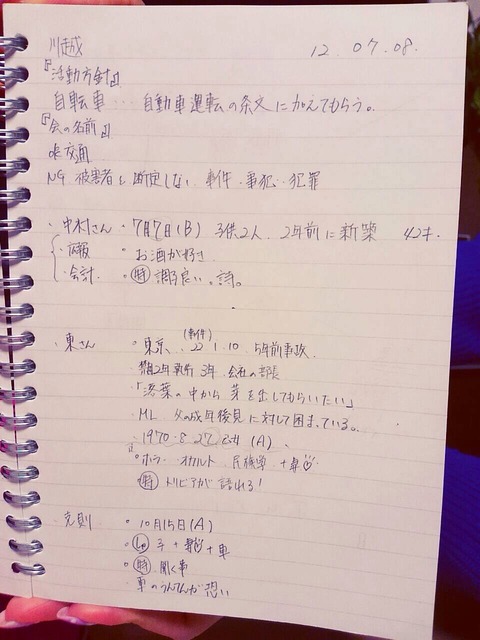 川越
12.07.08.
『活動方針』
自転車…自動車運転の条文に加えてもらう。
『会の名前』
ok 交通
NG 被害者と断定しない 事件・事犯・犯罪
・中村さん ・7月7日(B) 子供2人、2年前に新築 42才.
・広報 ・お酒が好き
・会計. ・時 調子良い.詩。
・東さん ・東京、(事件) 22 1 10 5年前事故.
3年.会社の部長
「落葉の中から芽を出してもらいたい」
ML 父の成年後見に対して困っている。
・1970.8.27 (A)、
・ホラー オカルト 民俗学 +車
・時 トリビアが語れる!
・克則 ・10月15日(A)
・子+ +車
・時 聞く事
・車のうんてんが恐い